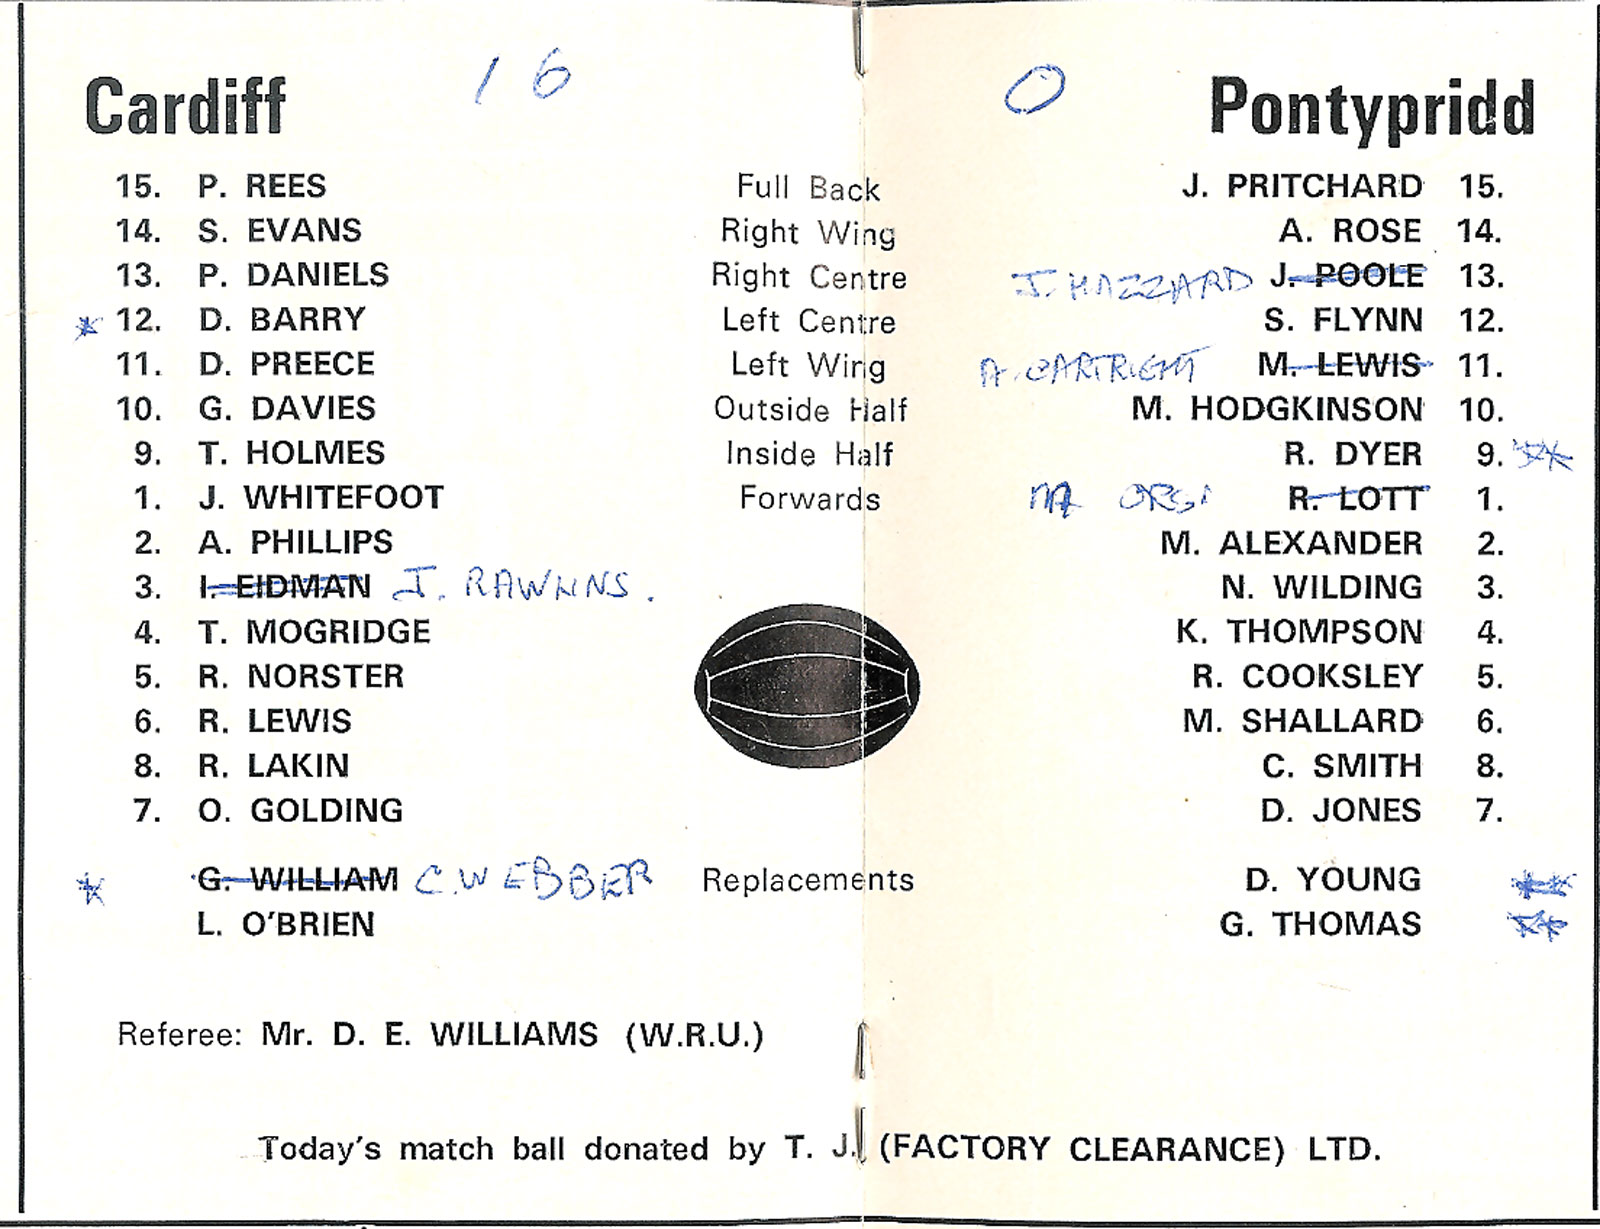 16 0
Cardiff Pontypridd
15. P. REES Full Back J. PRITCHARD 15.
14. S. EVANS Right Wing A. ROSE 14.
13. P. DANIELS Right Centre J. HAZZARD J. POOLE 13.
* 12. D. BARRY Left Centre S. FLYNN 12.
11. D. PREECE Left Wing A. CARTRIGHT M. LEWIS 11.
10. G. DAVIES Outside Half M. HODGKINSON 10.
9. T. HOLMES Inside Half R. DYER 9. **
1. J. WHITEFOOT Forwards ORSI R. LOTT 1.
2. A. PHILLIPS M. ALEXANDER 2.
3. I. EIDMAN J. RAWLINS. N. WILDING 3.
4. T. MOGRIDGE K. THOMPSON 4.
5. R. NORSTER R. COOKSLEY 5.
6. R. LEWIS M. SHALLARD 6.
8. R. LAKIN C. SMITH 8.
7. O. GOLDING D. JONES 7.
* G. WILLIAM C. WEBBER Replacements D. YOUNG **
L. O'BRIEN G. THOMAS **
Referee: Mr. D. E. WILLIAMS (W.R.U.)
Today's match ball donated by T. J. (FACTORY CLEARANCE) LTD.